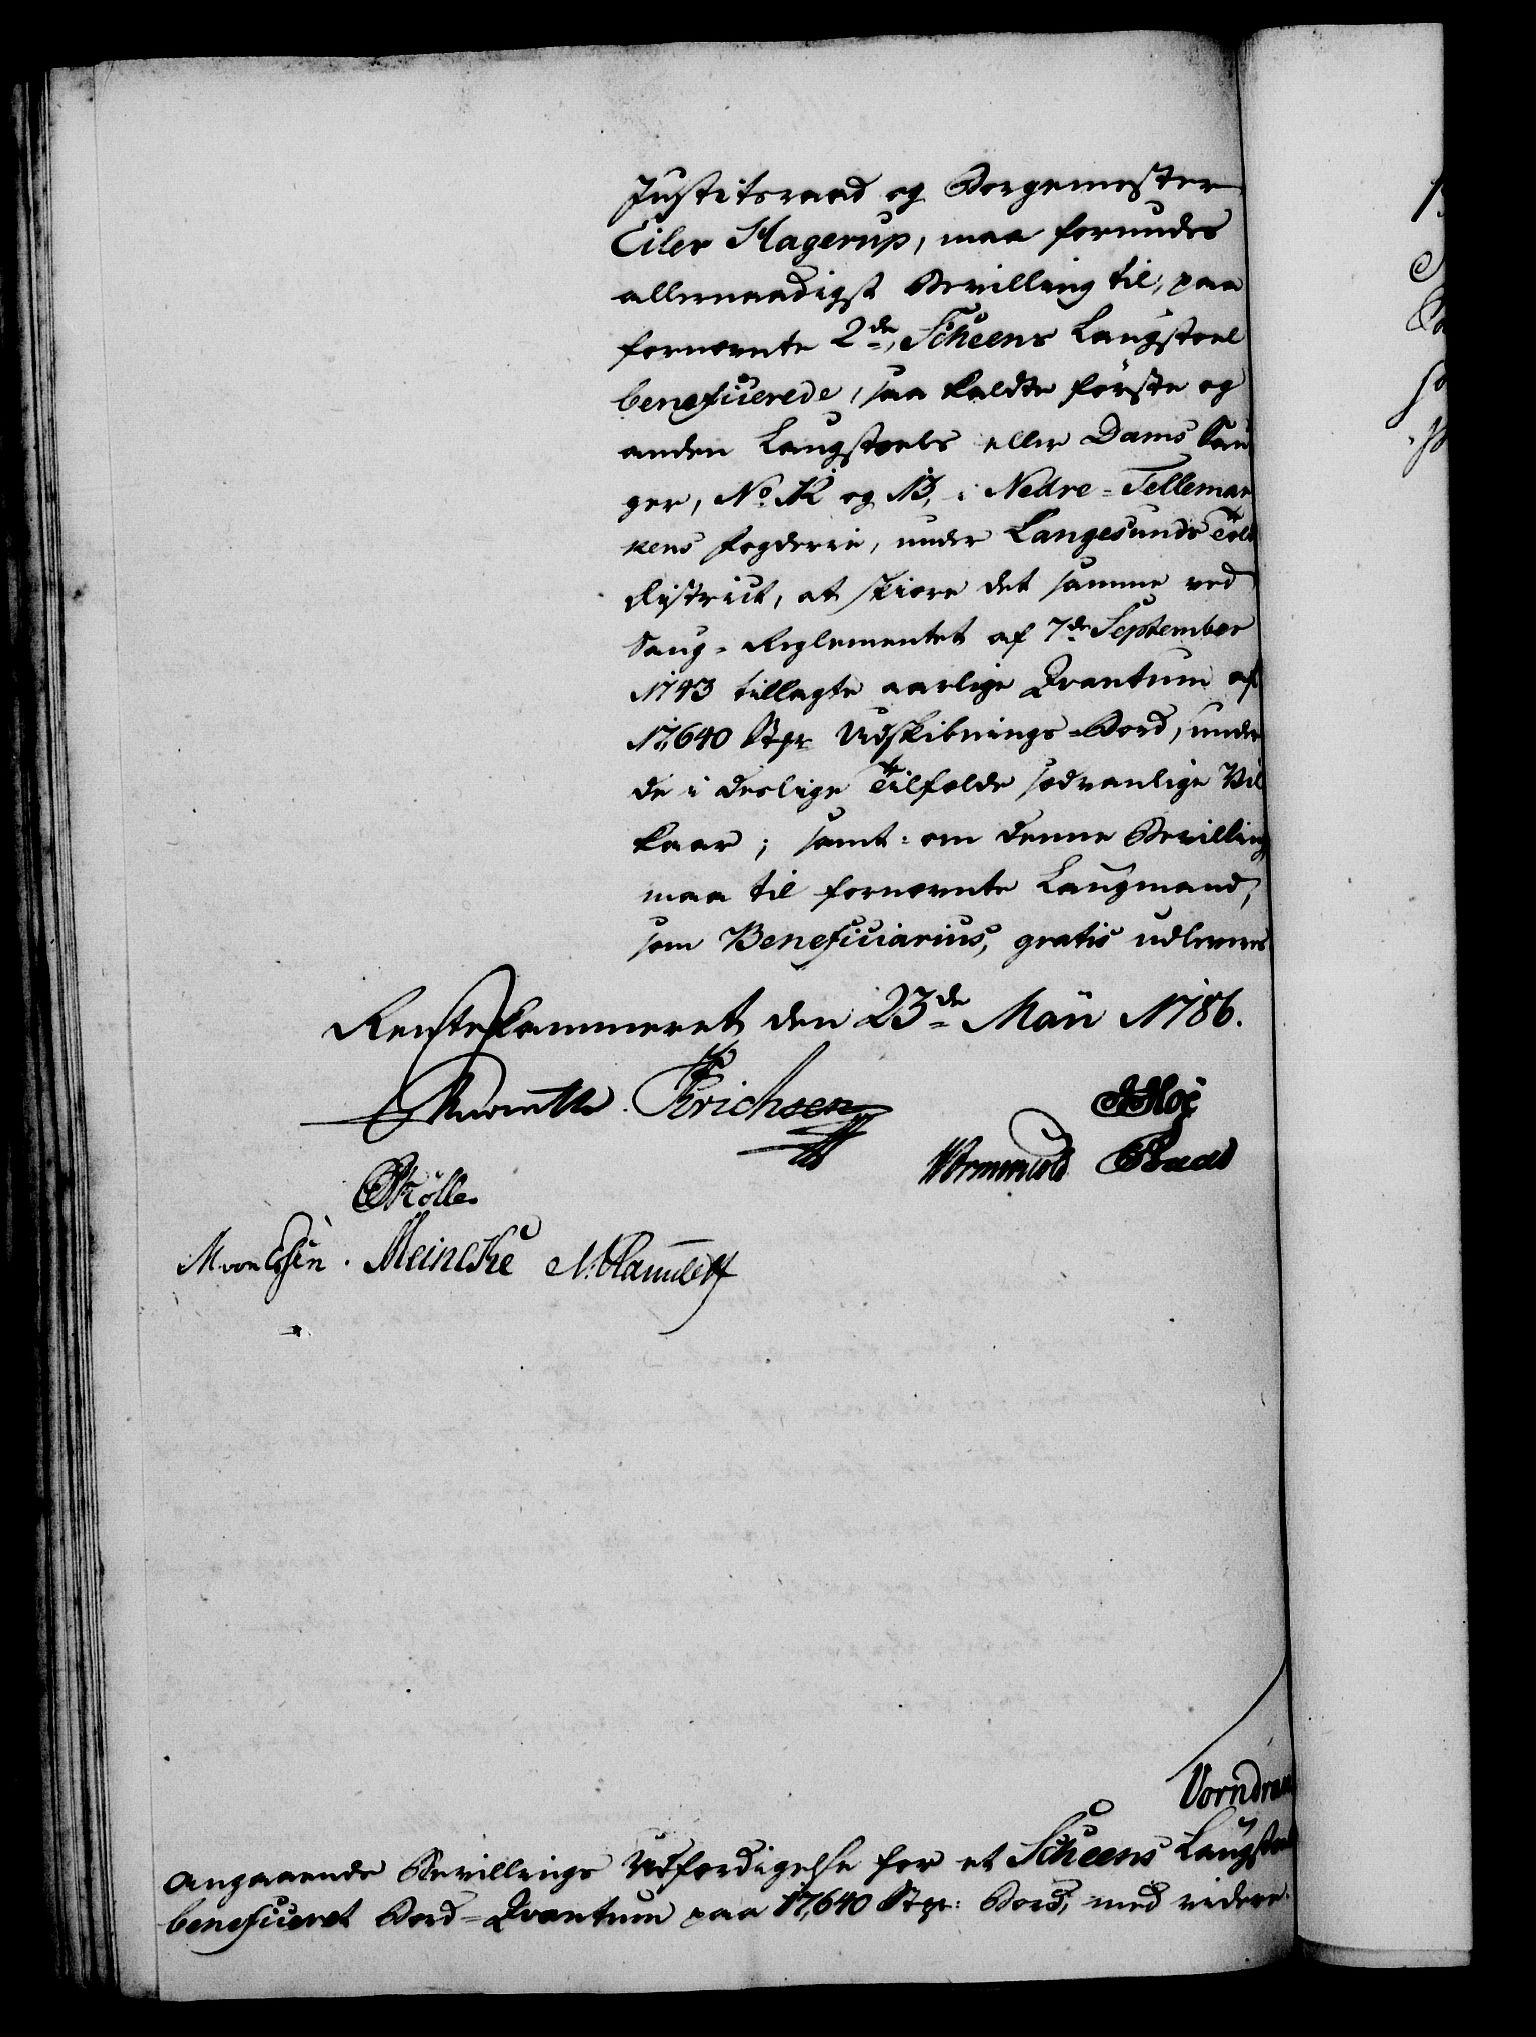 Justitsraad og Borgemester
Eiler Hagerup, maa forundes
allernaadigst Bevilling til, paa
fornævnte 2de, Scheens Laugstoel
beneficerede, saa kaldte første og
anden Laugstoels eller Dams Sau
ger, No. 12 og 13, i Nedre-Tellemar
kens Fogderie, under Langesunds Told
District, at skiære det samme ved
Saug-Reglementet af 7de September
1743 tillagte aarlige Qvantum af
17,640 Stpr Udskibnings-Bord, under
de i deslige Tilfælde sædvanlige Vil
kaar; samt: om denne Bevilling
maa til fornævnte Laugmand,
som Beneficiarius, gratis udleveres
Rentekammeret den 23de Maii 1786.
Erichsen
Müller
M von Essen. Meincke
Vorndran
angaaende Bevillings Udfærdigelse for et Scheens Laugstoel
beneficeret Bord-Qvantum paa 17,640 Stpr: Bord, med videre.